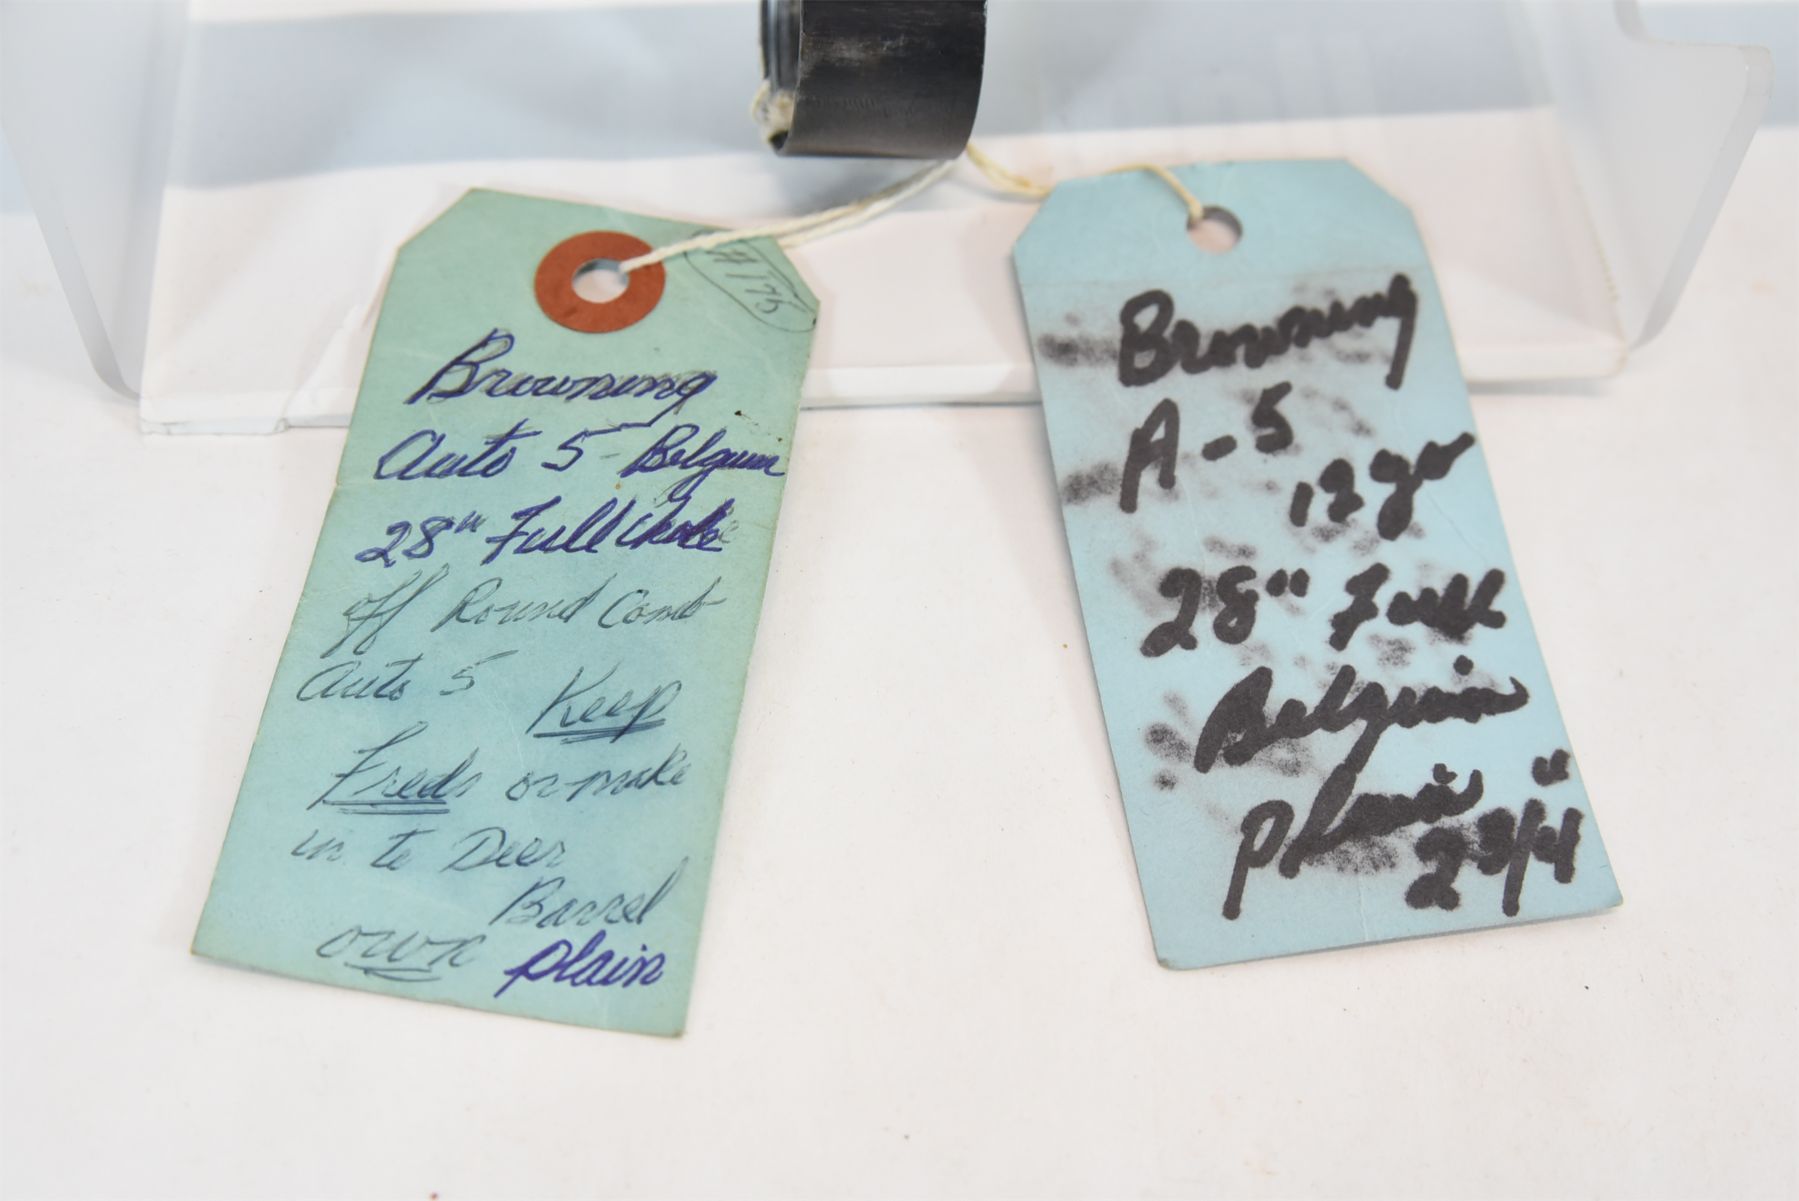 Browning
Auto 5 - Belgium
28" Full Choke
off Round Comb
Auto 5
Keep
Freds or make
in to Deer
Barrel
own
plain
Browning
A-5
12 ga
28" Full
Belgium
Plain
2 3/4"